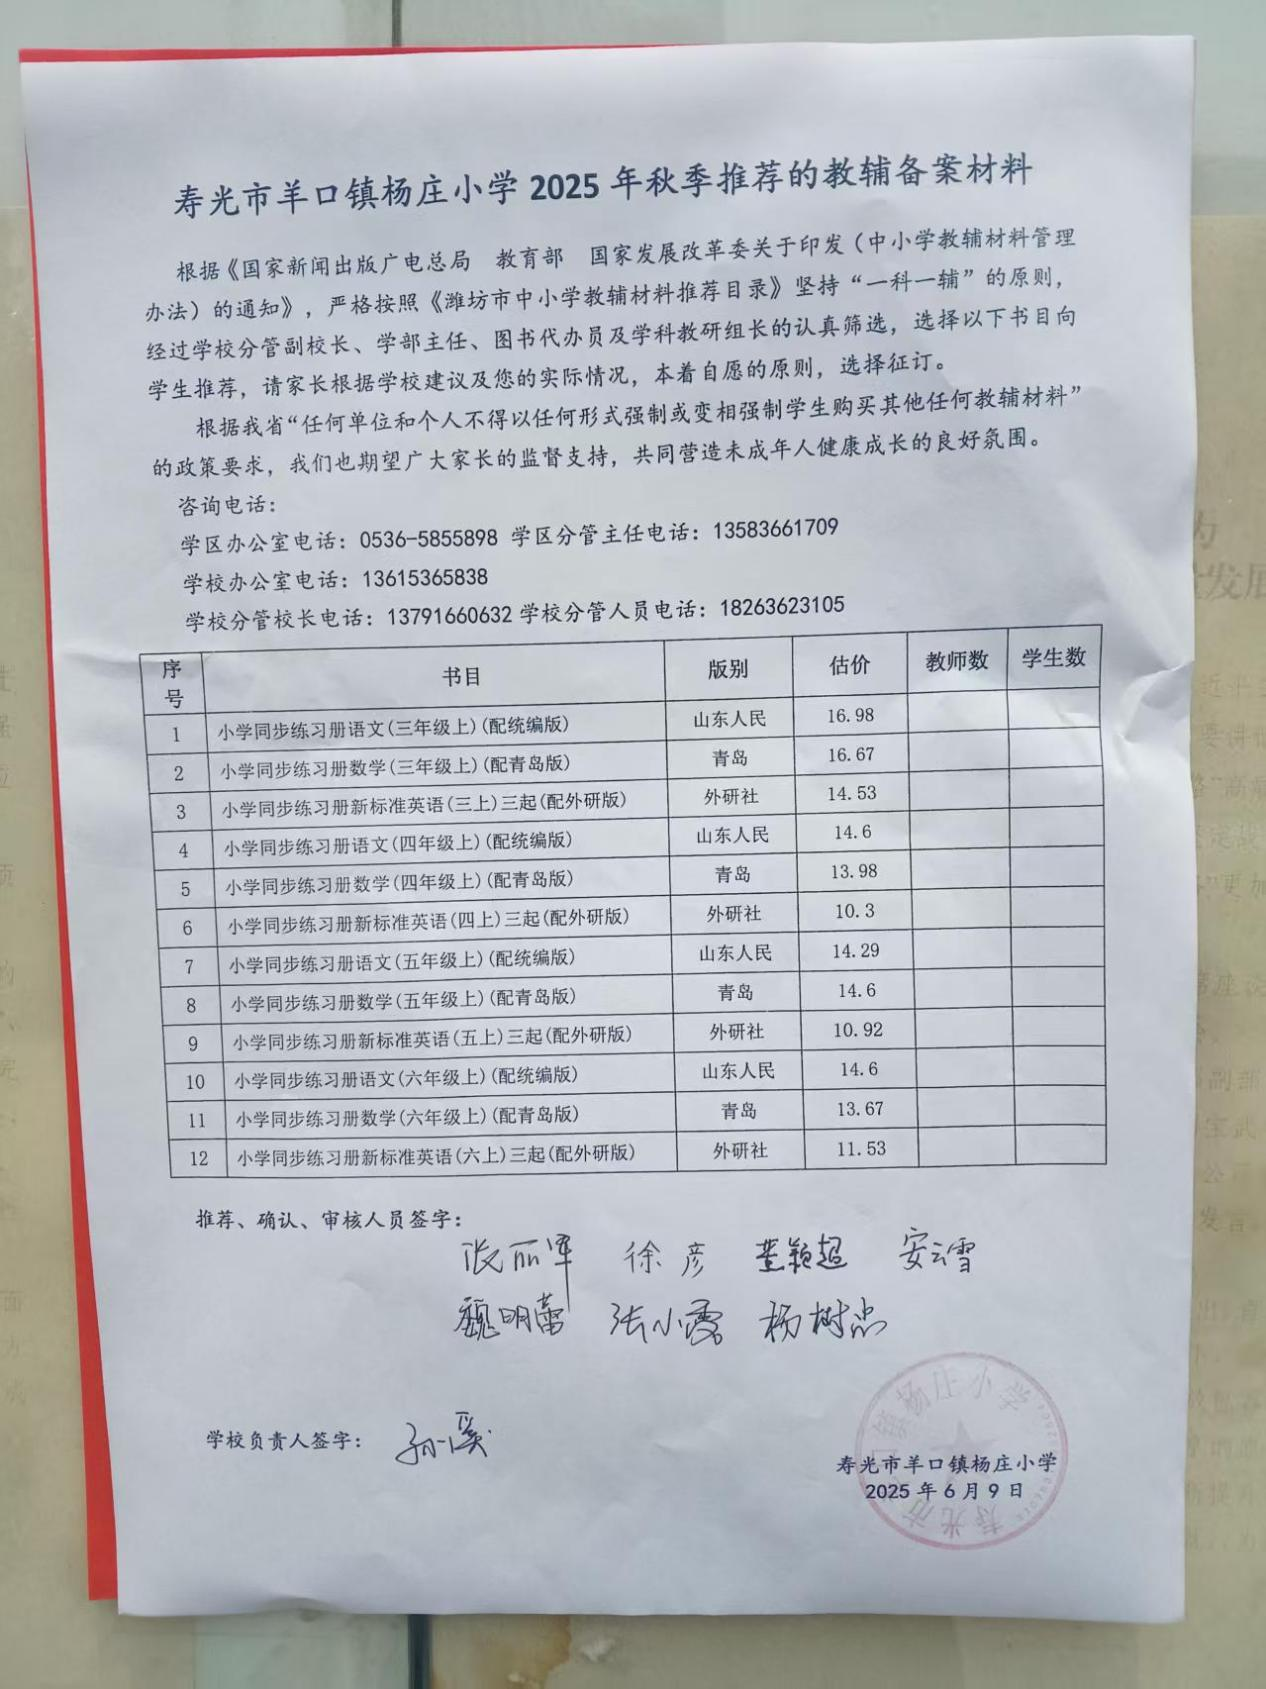 寿光市羊口镇杨庄小学 2025 年秋季推荐的教辅备案材料
根据《国家新闻出版广电总局 教育部 国家发展改革委关于印发（中小学教辅材料管理
办法）的通知》，严格按照《潍坊市中小学教辅材料推荐目录》坚持“一科一辅”的原则，
经过学校分管副校长、学部主任、图书代办员及学科教研组长的认真筛选，选择以下书目向
学生推荐，请家长根据学校建议及您的实际情况，本着自愿的原则，选择征订。
根据我省“任何单位和个人不得以任何形式强制或变相强制学生购买其他任何教辅材料”
的政策要求，我们也期望广大家长的监督支持，共同营造未成年人健康成长的良好氛围。
咨询电话：
学区办公室电话：0536-5855898 学区分管主任电话：13583661709
学校办公室电话：13615365838
学校分管校长电话：13791660632 学校分管人员电话：18263623105
序号 书目 版别 估价 教师数 学生数
1 小学同步练习册语文(三年级上)(配统编版) 山东人民 16.98
2 小学同步练习册数学(三年级上)(配青岛版) 青岛 16.67
3 小学同步练习册新标准英语(三上)三起(配外研版) 外研社 14.53
4 小学同步练习册语文(四年级上)(配统编版) 山东人民 14.6
5 小学同步练习册数学(四年级上)(配青岛版) 青岛 13.98
6 小学同步练习册新标准英语(四上)三起(配外研版) 外研社 10.3
7 小学同步练习册语文(五年级上)(配统编版) 山东人民 14.29
8 小学同步练习册数学(五年级上)(配青岛版) 青岛 14.6
9 小学同步练习册新标准英语(五上)三起(配外研版) 外研社 10.92
10 小学同步练习册语文(六年级上)(配统编版) 山东人民 14.6
11 小学同步练习册数学(六年级上)(配青岛版) 青岛 13.67
12 小学同步练习册新标准英语(六上)三起(配外研版) 外研社 11.53
推荐、确认、审核人员签字：
张丽军 徐彦 董颖超 安云雪
魏明蕾 张小霞 杨树忠
学校负责人签字： 孙溪
寿光市羊口镇杨庄小学
2025 年 6 月 9 日
寿光市羊口镇杨庄小学